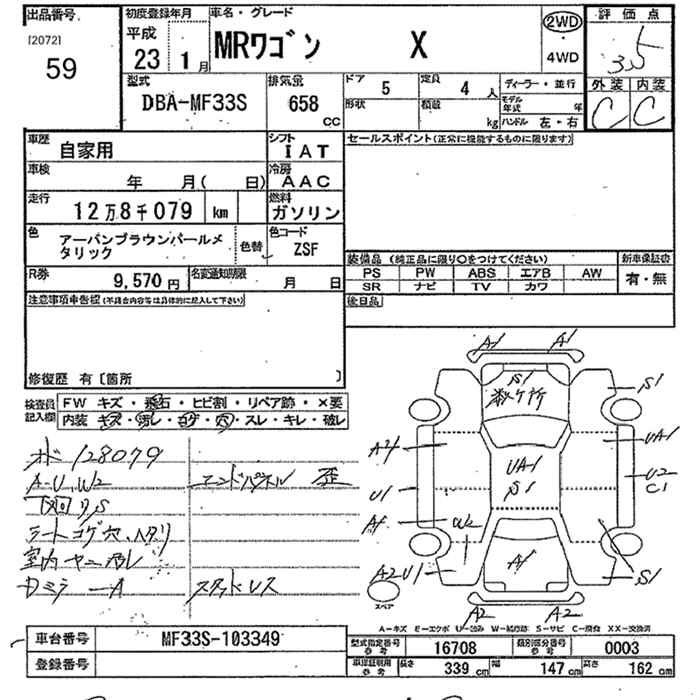 出品番号
[2072]
59
初度登録年月
平成
23 1月
車名・グレード
MRワゴン X
2WD
4WD
評価点
3.5
外装 内装
C C
型式
DBA-MF33S
排気量
658
CC
ドア
5
定員
4人
形状
積載
kg
ディーラー・並行
モデル年式 年
ハンドル 左・右
車歴
自家用
シフト
IAT
車検
年 月( 日)
冷房
AAC
走行
12万8千079 km
燃料
ガソリン
色
アーバンブラウンパールメタリック
色替
色コード
ZSF
R券
9,570円
名変通知期限
月 日
セールスポイント(正常に機能するものに限ります)
装備品 (純正品に限り○をつけてください)
新車保証書
PS PW ABS エアB AW
SR ナビ TV カワ
有・無
後日品
注意事項申告欄(不具合内容等は具体的に記入して下さい)
修復歴 有〔箇所 〕
検査員記入欄
FW キズ・飛石・ヒビ割・リペア跡・×要
内装 キズ・汚レ・コゲ・穴・スレ・キレ・破レ
メボ 128079
A-U,W2
エンドパネル 歪
下廻りS
シートコゲ穴、ヘタリ
室内ヤニ汚レ
スタッドレス
A1 A1
S1
数ヶ所
S1
A4
UA1
UA1
S1
U2
C1
U1
W2
A1
A2 U1
S1
スペア
A2 A2
A-キズ E-エクボ U-凹み W-補修跡 S-サビ C-腐食 XX-交換済
車台番号
MF33S-103349
登録番号
型式指定番号
参考
16708
類別区分番号
参考
0003
車庫証明用
参考
長さ
339 cm
幅
147 cm
高さ
162 cm